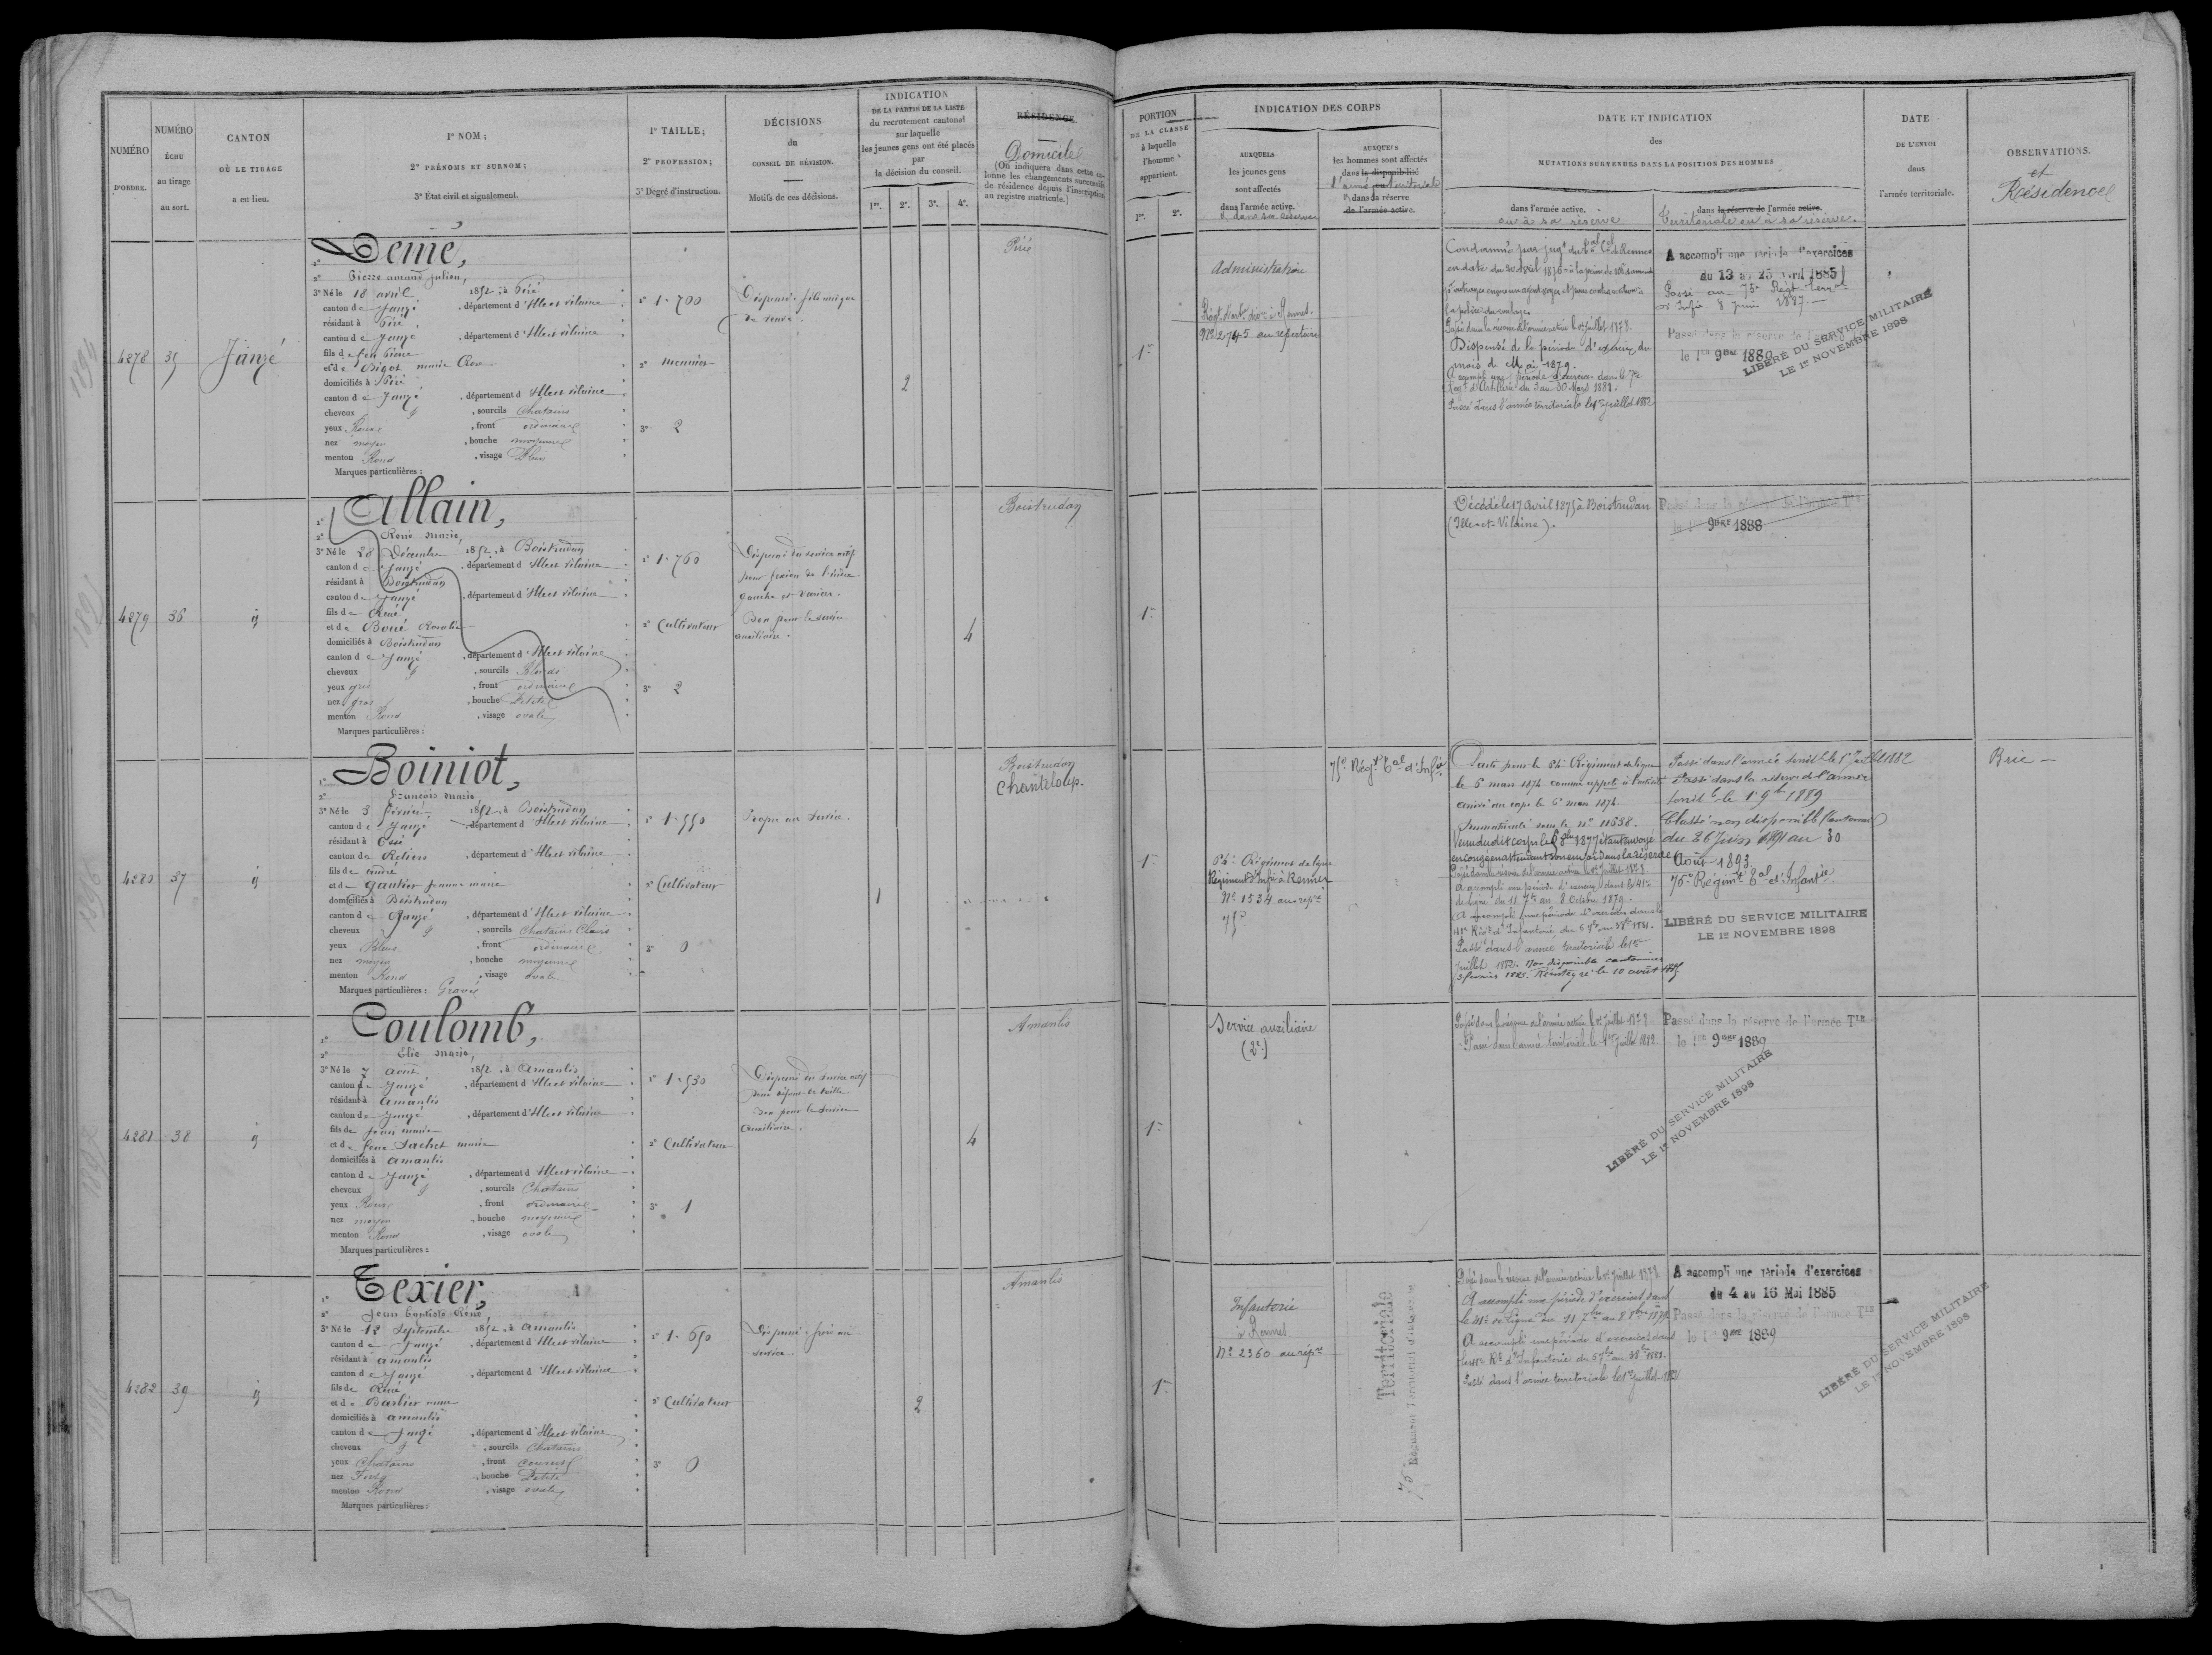 NUMÉRO
D'ORDRE.
NUMÉRO
ÉCHU
au tirage
au sort.
CANTON
OÙ LE TIRAGE
a eu lieu.
1° NOM ;
2° PRÉNOMS ET SURNOM ;
3° État civil et signalement.
1° TAILLE ;
2° PROFESSION ;
3° Degré d'instruction.
DÉCISIONS
du
CONSEIL DE RÉVISION.
Motifs de ces décisions.
INDICATION
DE LA PARTIE DE LA LISTE
du recrutement cantonal
sur laquelle
les jeunes gens ont été placés
par
la décision du conseil.
1re. 2e. 3e. 4e.
RÉSIDENCE
Domicile
(On indiquera dans cette co-
lonne les changements successifs
de résidence depuis l'inscription
au registre matricule.)
PORTION
DE LA CLASSE
à laquelle
l'homme
appartient.
1re. 2e.
INDICATION DES CORPS
AUXQUELS
les jeunes gens
sont affectés
dans l'armée active.
& dans sa réserve
AUXQUELS
les hommes sont affectés
dans la disponibilité
l'armée territoriale
& dans sa réserve
de l'armée active.
DATE ET INDICATION
des
MUTATIONS SURVENUES DANS LA POSITION DES HOMMES
dans l'armée active.
ou à sa réserve
dans la réserve de l'armée active.
Territoriale ou à sa réserve.
DATE
DE L'ENVOI
dans
l'armée territoriale.
OBSERVATIONS.
et
Résidence
4278 35 Janzé
Demé,
2° Pierre amand Julien,
3° Né le 18 avril 1852, à Piré
canton de Janzé, département d'Ille et vilaine
résidant à Piré
canton de Janzé, département d'Ille et vilaine
fils de feu Pierre
et de Bigot marie Rose
domiciliés à Piré
canton de Janzé, département d'Ille et vilaine
cheveux, sourcils Chatains
yeux Roux, front ordinaire
nez moyen, bouche moyenne
menton Rond, visage
Marques particulières :
1° 1.700
2° meunier
3° 2
Dispensé fils unique
de veuve.
2
Piré
1re
Administration
Nº 2745 au répertoire
Condamné par jugt du
en date du
Passé dans la réserve de l'armée active le 1er Juillet 1878.
Dispensé de la période d'exercices du
mois de Mai 1879.
A accompli une période d'exercices dans le 7e
Regt d'Artillerie du 3 au 30 Mars 1881.
Passé dans l'armée territoriale le 1er Juillet 1882
A accompli une période d'exercices
du 13 au 25 avril 1885
Passé au 75e Régt Terral
d'Infie 8 Juin 1887
Passé dans la réserve de l'armée
le 1er 9bre 1889
LIBÉRÉ DU SERVICE MILITAIRE
LE 1er NOVEMBRE 1898
4279 36 id
Allain,
2° René Marie,
3° Né le 28 Décembre 1852, à Boistrudan
canton de Janzé, département d'Ille et vilaine
résidant à Boistrudan
canton de Janzé, département d'Ille et vilaine
fils de René
et de Boué Rosalie
domiciliés à Boistrudan
canton de Janzé, département d'Ille et vilaine
cheveux, sourcils Blonds
yeux gris, front ordinaire
nez gros, bouche Petite
menton Rond, visage ovale
Marques particulières :
1° 1.760
2° Cultivateur
3° 2
Dispensé du service actif
pour
gauche et varices.
Bon pour le service
auxiliaire.
4
Boistrudan
1re
Décédé le 17 Avril 1875 à Boistrudan
(Ille-et-Vilaine).
Passé dans la réserve de l'armée Tle
le 1er 9bre 1888
4280 37 id
Boiniot,
2° François Marie
3° Né le 3 février 1852, à Boistrudan
canton de Janzé, département d'Ille et vilaine
résidant à Essé
canton de Retiers, département d'Ille et vilaine
fils de andré
et de Gautier Jeanne marie
domiciliés à Boistrudan
canton de Janzé, département d'Ille et vilaine
cheveux, sourcils Chatains Clairs
yeux Bleus, front ordinaire
nez moyen, bouche moyenne
menton Rond, visage ovale
Marques particulières : Gravé
1° 1.550
2° Cultivateur
3° 0
Propre au service.
1
Boistrudan
Chanteloup.
1re
Régiment de ligne
Régiment d'Infie à Rennes
Nº 1534 au répre
75e
75e Régt Tal d'Infie
Parti pour le Régiment de ligne
le 6 mars 1874 comme appelé à l'activité
arrivé au corps le 6 mars 1874.
Immatriculé sous le nº 11638.
Venu dudit corps le 1877 étant envoyé
en congé en attendant son envoi dans la réserve
Passé dans la réserve de l'armée active le 1er Juillet 1878
A accompli une période d'exercices dans le 41e
de ligne du 11 7bre au 8 Octobre 1879.
A accompli une période d'exercices dans le
41e Régt d'Infanterie, du 1881.
Passé dans l'armée territoriale le 1er
Juillet 1882. Non disponible cantonnier
3 février 1885. Réintégré le 10 août 1885
Passé dans l'armée territle le 1er Juillet 1882
Passé dans la réserve de l'armée
territle le 1er 9bre 1889
Classé non disponible (cantonnier)
du 26 Juin 1891 au 30
Août 1893.
75e Régimt Tal d'Infantie.
LIBÉRÉ DU SERVICE MILITAIRE
LE 1er NOVEMBRE 1898
Brie
4281 38 id
Coulomb,
2° Elie Marie,
3° Né le 7 Août 1852, à Amanlis
canton de Janzé, département d'Ille et vilaine
résidant à Amanlis
canton de Janzé, département d'Ille et vilaine
fils de Jean marie
et de feue Sachet marie
domiciliés à Amanlis
canton de Janzé, département d'Ille et vilaine
cheveux, sourcils Chatains
yeux Roux, front ordinaire
nez moyen, bouche moyenne
menton Rond, visage ovale
Marques particulières :
1° 1.530
2° Cultivateur
3° 1
Dispensé du service actif
pour défaut de taille.
Bon pour le service
auxiliaire.
4
Amanlis
1re
Service auxiliaire
(2e)
Passé dans la réserve de l'armée active le 1er Juillet 1878
Passé dans l'armée territoriale le 1er Juillet 1882
Passé dans la réserve de l'armée Tle
le 1er 9bre 1889
LIBÉRÉ DU SERVICE MILITAIRE
LE 1er NOVEMBRE 1898
4282 39 id
Texier,
2° Jean Baptiste René,
3° Né le 12 Septembre 1852, à Amanlis
canton de Janzé, département d'Ille et vilaine
résidant à Amanlis
canton de Janzé, département d'Ille et vilaine
fils de René
et de Barbier anne
domiciliés à Amanlis
canton de Janzé, département d'Ille et vilaine
cheveux, sourcils Chatains
yeux Chatains, front couvert
nez Fort, bouche Petite
menton Rond, visage ovale
Marques particulières :
1° 1.650
2° Cultivateur
3° 0
Dispensé frère au
service.
2
Amanlis
1re
Infanterie
à Rennes
Nº 2360 au répre
Territoriale
75e Régiment Territorial d'Infanterie
Passé dans la réserve de l'armée active le 1er Juillet 1878
A accompli une période d'exercices dans
le 41e de ligne du 11 7bre au 8 8bre 1879
A accompli une période d'exercices dans
le 41e Rt d'Infanterie du 1881.
Passé dans l'armée territoriale le 1er Juillet 1882
A accompli une période d'exercices
du 4 au 16 Mai 1885
Passé dans la réserve de l'armée Tle
le 1er 9bre 1889
LIBÉRÉ DU SERVICE MILITAIRE
LE 1er NOVEMBRE 1898